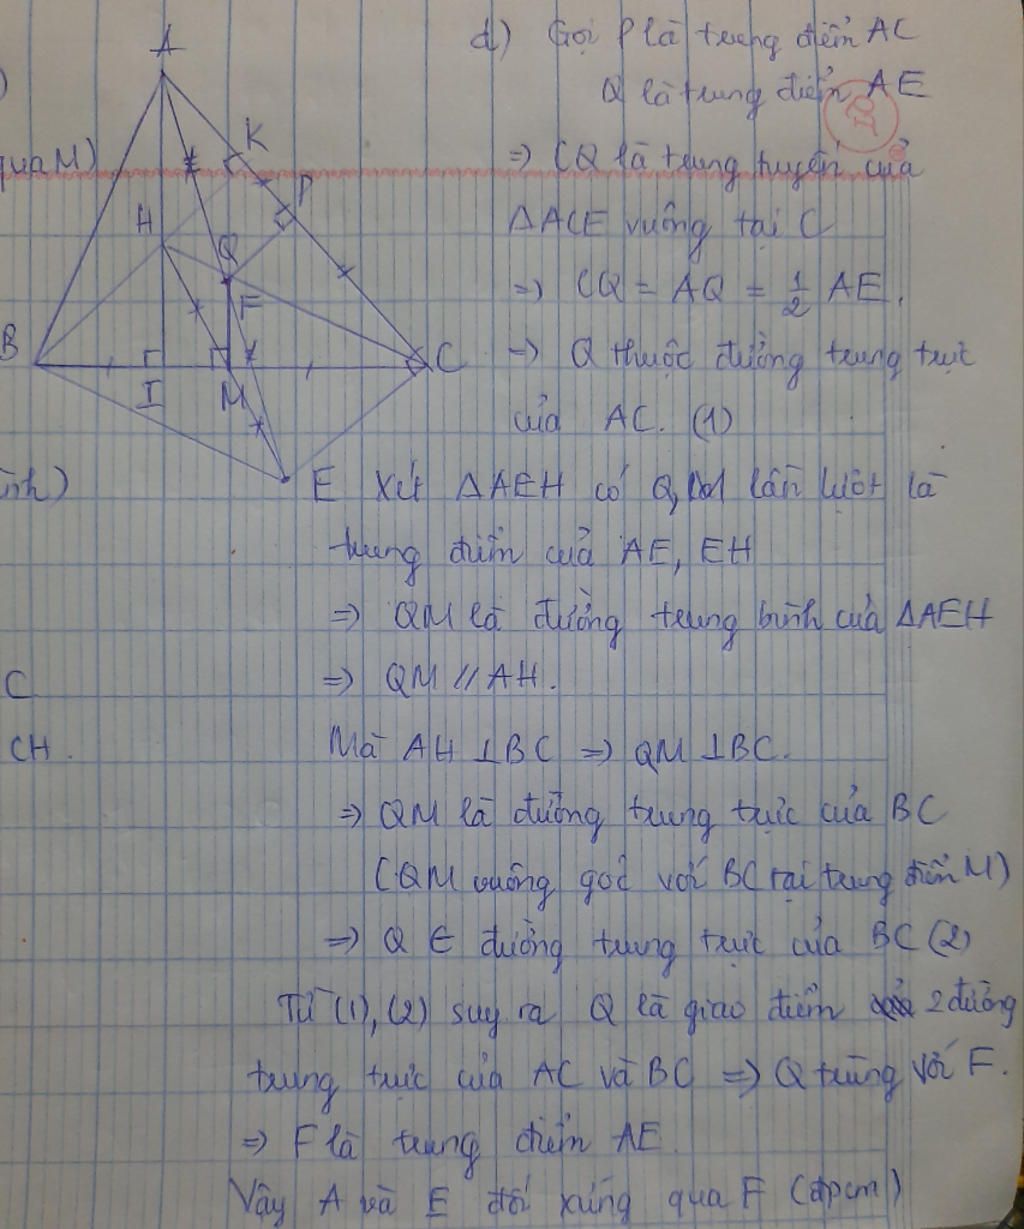 A
d) Gọi P là trung điểm AC
Q là trung điểm AE
K
quaM)
P
⇒ CQ là trung tuyến của
H
ΔACE vuông tại C
Q
F
⇒ CQ = AQ = 1/2 AE.
B
C
⇒ Q thuộc đường trung trực
I
M
của AC. (1)
E
Xét ΔAEH có Q, M lần lượt là
ình)
trung điểm của AE, EH
⇒ QM là đường trung bình của ΔAEH
C
⇒ QM // AH.
CH.
Mà AH ⊥ BC ⇒ QM ⊥ BC.
⇒ QM là đường trung trực của BC
(QM vuông góc với BC tại trung điểm M)
⇒ Q ∈ đường trung trực của BC (2)
Từ (1), (2) suy ra Q là giao điểm của 2 đường
trung trực của AC và BC ⇒ Q trùng với F.
⇒ F là trung điểm AE.
Vậy A và E đối xứng qua F (đpcm)